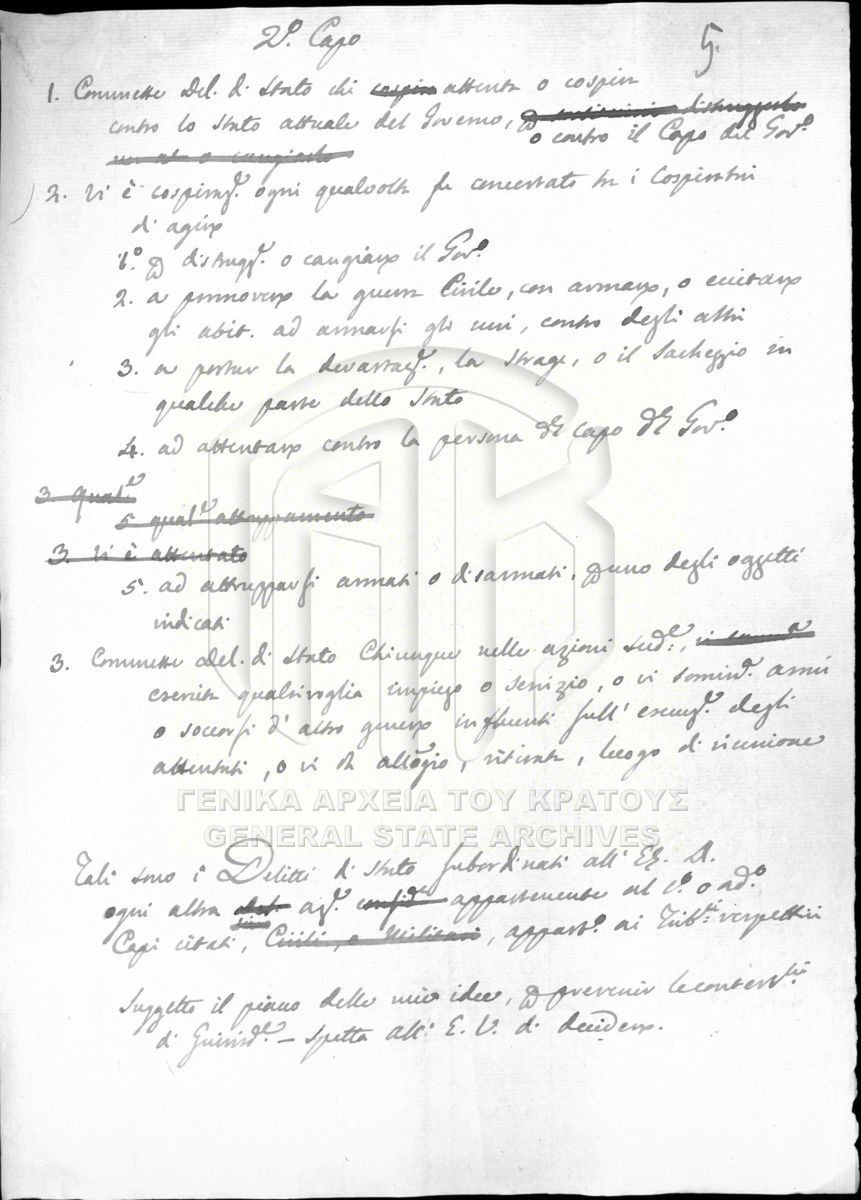 2.º Capo
5.
1. Commette Del. di Stato chi cospira attenta o cospira
contro lo stato attuale del Governo, distruggerlo
o contro il Capo del Gov.º
o cangiarlo
2. Vi è cospiraz.e ogni qualvolta fu concertato tra i Cospiratori
di agire
1.º distrugg.e o cangiare il Gov.º
2. a promovere la guerra Civile, con armare, o eccitare
gli abit. ad armarsi gli uni, contro degli altri
3. a portar la devastaz.e, la strage, o il Saccheggio in
qualche parte dello Stato
4. ad attentare contro la persona del Capo del Gov.º
3. Qual.e
5 qual.e attruppamento
3. Vi è attentato
5. ad attrupparsi armati o disarmati, p uno degli oggetti
indicati
3. Commette Del. di Stato Chiunque nelle azioni sud.e,
esercita qualsivoglia impiego o servizio, o vi sominis.a armi
o soccorsi d'altro genere influenti sull'esecuz.e degli
attentati, o vi dà alloggio, ritirata, luogo di riunione
ΓΕΝΙΚΑ ΑΡΧΕΙΑ ΤΟΥ ΚΡΑΤΟΥΣ
GENERAL STATE ARCHIVES
Tali sono i Delitti di Stato subordinati all'
ogni altra az.e appartenente al 1.º o al 2.º
Capi citati, Civili, o Militari, appart.e ai Trib.li rispettivi
Suggetto il piano delle mie idee, p prevenir le
di Giurisd.e – spetta all' E. V. di decidere.